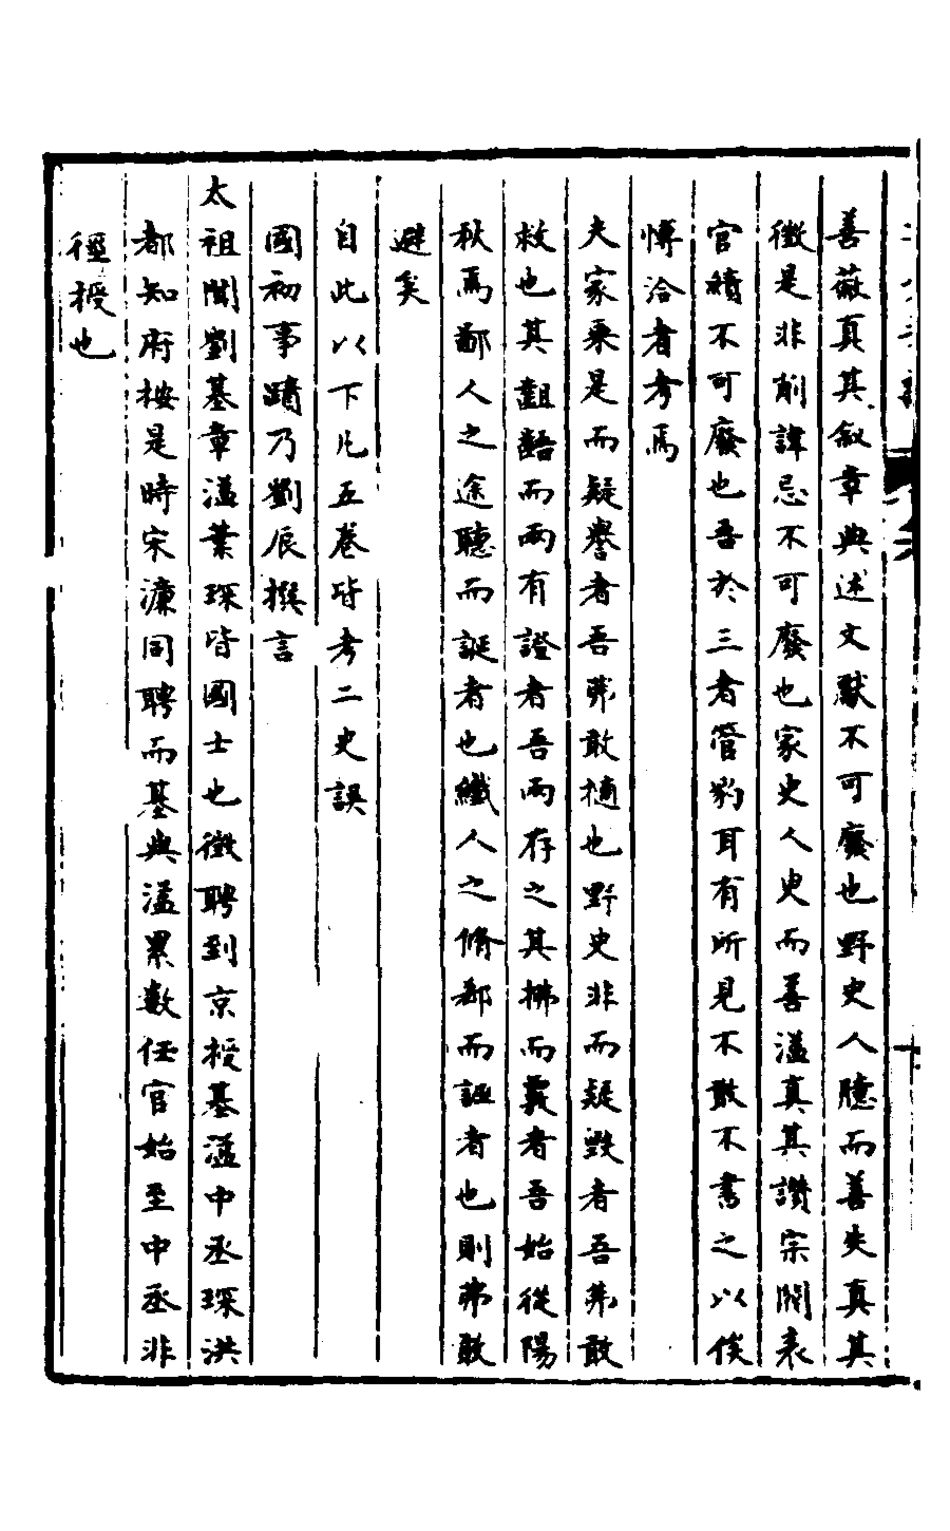 善蔽真其叙章典述文獻不可廢也野史人臆而善失真其
徵是非削諱忌不可廢也家史人臾而善溢真其讚宗閥表
官績不可廢也吾於三者管豹耳有所見不敢不書之以俟
愽洽者考焉
夫家乘是而疑譽者吾弗敢擿也野史非而疑毀者吾弗敢
救也其齟齬而兩有證者吾兩存之其拂而者吾始從陽
秋焉鄙人之途聽而誕者也纖人之脩郄而誣者也則弗敢
避矣
自此以下凡五卷皆考二史誤
國初事蹟乃劉辰撰言
太祖聞劉基章溢葉琛皆國士也徵聘到京授基溢中丞琛洪
都知府按是時宋濂同聘而基與溢累數任官始至中丞非
徑授也